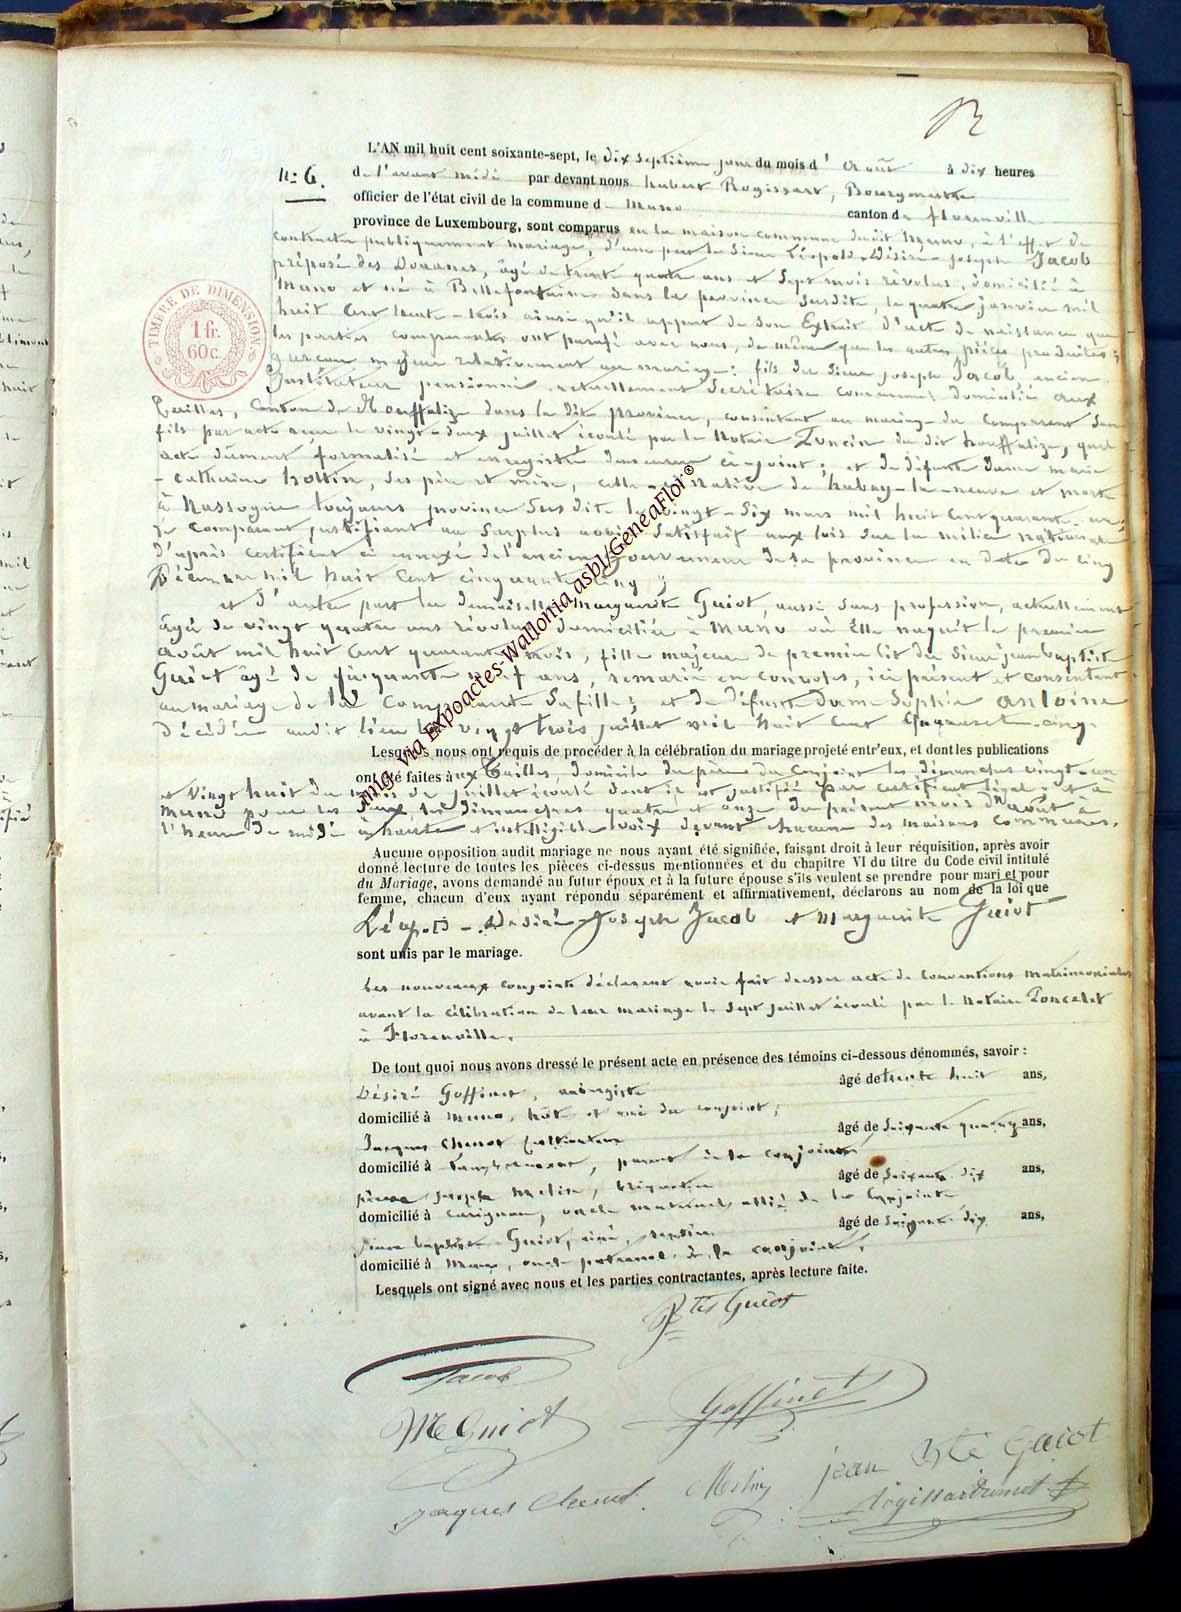 N° 6.
L'AN mil huit cent soixante-sept, le dix septième jour du mois d'Août à dix heures
de l'avant midi par devant nous hubert Rogissart, Bourgmestre
officier de l'état civil de la commune de Muno canton de florenville
province de Luxembourg, sont comparus en la maison commune dudit Muno, à l'effet de
contracter publiquement mariage, d'une part le Sieur Léopold-Désiré-Joseph Jacob
préposé des Douanes, âgé de trente quatre ans et Sept mois révolus, domicilié à
Muno et né à Bellefontaine dans la province susdite, le quatre janvier mil
huit Cent trente-trois ainsi qu'il appert de son Extrait d'acte de naissance que
les parties comparantes ont parafé avec nous, de même que les autres pièces produites;
garçon majeur relativement au mariage; fils du Sieur Joseph Jacob, ancien
Instituteur pensionné actuellement Secrétaire communal domicilié aux
Tailles, Canton de Houffalize dans la dite province, consentant au mariage du Comparant Son
fils par acte reçu le vingt-deux juillet écoulé par le Notaire du dit houffalize, quel
acte dûment formalisé et enregistré demeure ci-joint; et de défunte Dame marie
-catherine hottin, ses père et mère, celle-ci native de habay-la-neuve et morte
à Nassogne toujours province Susdite le vingt-six mars mil huit cent quarante-un;
le Comparant justifiant au Surplus avoir Satisfait aux lois sur la milice nationale
d'après certificat ci annexé de l'ancien gouverneur de la province en date du cinq
Décembre mil huit cent cinquante cinq;
et d'autre part la demoiselle Marguerite Guiot, aussi sans profession, actuellement
âgée de vingt quatre ans révolus domiciliée à Muno où Elle naquit le premier
août mil huit Cent quarante trois, fille majeure du premier lit du Sieur jean baptiste
Guiot âgé de cinquante neuf ans, remarié en convoles, ici présent et consentant
au mariage de la Comparante Sa fille; et de défunte dame Sophie antoine
décédée audit lieu le vingt trois juillet mil huit Cent Cinquante-cinq.
Lesquels nous ont requis de procéder à la célébration du mariage projeté entr'eux, et dont les publications
ont été faites aux Tailles, domicile du père du Conjoint les dimanches vingt-un
et vingt huit du mois de juillet écoulé dont il est justifié par certificat légal et à
Muno pour les deux, les dimanches quatre et onze du présent mois d'août à
l'heure de midi à haute et intelligible voix devant chacune des maisons communes.
Aucune opposition audit mariage ne nous ayant été signifiée, faisant droit à leur réquisition, après avoir
donné lecture de toutes les pièces ci-dessus mentionnées et du chapitre VI du titre du Code civil intitulé
du Mariage, avons demandé au futur époux et à la future épouse s'ils veulent se prendre pour mari et pour
femme, chacun d'eux ayant répondu séparément et affirmativement, déclarons au nom de la loi que
Léopold-Désiré-Joseph Jacob et Marguerite Guiot
sont unis par le mariage.
Les nouveaux conjoints déclarent avoir fait dresser acte de Conventions Matrimoniales
avant la célébration de leur mariage le Sept juillet écoulé par le Notaire Poncelet
à Florenville.
De tout quoi nous avons dressé le présent acte en présence des témoins ci-dessous dénommés, savoir :
Désiré Goffinet, aubergiste âgé de trente huit ans,
domicilié à Muno, hôte et ami du conjoint;
Jacques Chenot Cultivateur âgé de Soixante quatorze ans,
domicilié à parent de la conjointe
pierre joseph Meslin, âgé de Soixante-dix ans,
domicilié à Carignan, oncle maternel, allié de la Conjointe
Jean baptiste Guiot, ainé, rentier âgé de Soixante-dix ans,
domicilié à Muno, oncle paternel de la conjointe.
Lesquels ont signé avec nous et les parties contractantes, après lecture faite.
Btis Guiot
Jacob
M Guiot
Goffinet
Jaques Chenot
Meslin
jean Bte Guiot
TIMBRE DE DIMENSION
1 fr.
60c.
img. via Expoactes-Wallonia asbl/GeneaFloi®